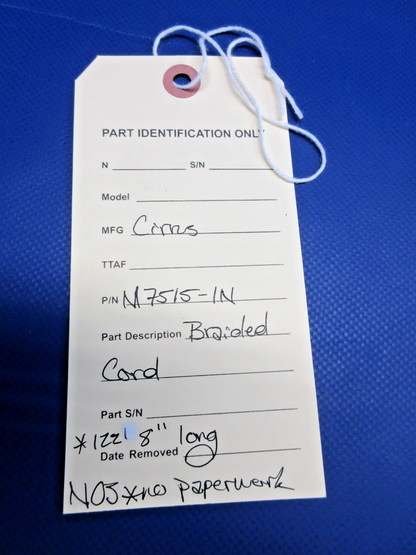 PART IDENTIFICATION ONLY
N S/N
Model
MFG Cirrus
TTAF
P/N M7515-1N
Part Description Braided
Cord
Part S/N
*122' 8" long
Date Removed
NOS *no paperwork